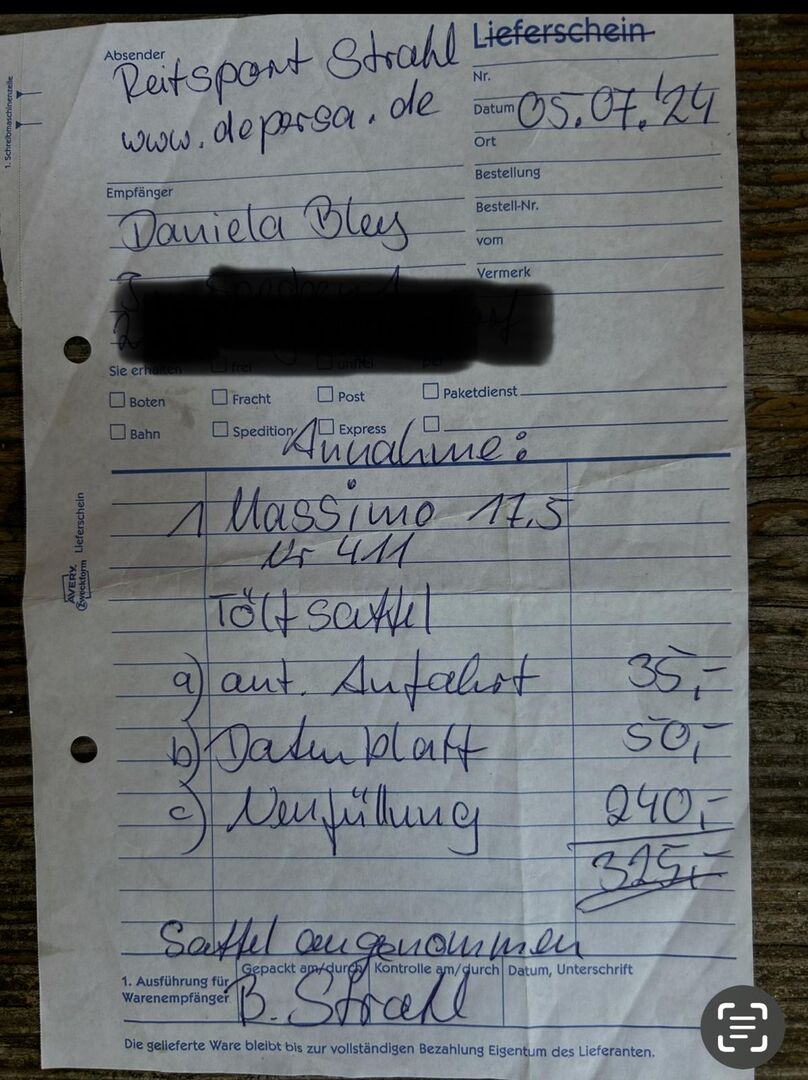 Lieferschein
Absender
Reitsport Strahl
www.depersa.de
Nr.
Datum 05.07.'24
Ort
Empfänger
Daniela Bley
Bestellung
Bestell-Nr.
vom
Vermerk
Sie erhalten frei unfrei per
Boten Fracht Post Paketdienst
Bahn Spedition Express
Annahme:
1 Massimo 17,5
Nr 411
Töltsattel
a) ant. Anfahrt 35,-
b) Datenblatt 50,-
c) Neufüllung 240,-
325,-
Sattel angenommen
1. Ausführung für Warenempfänger
Gepackt am/durch Kontrolle am/durch Datum, Unterschrift
B. Strahl
Die gelieferte Ware bleibt bis zur vollständigen Bezahlung Eigentum des Lieferanten.
1. Schreibmaschinenzeile
AVERY Zweckform Lieferschein